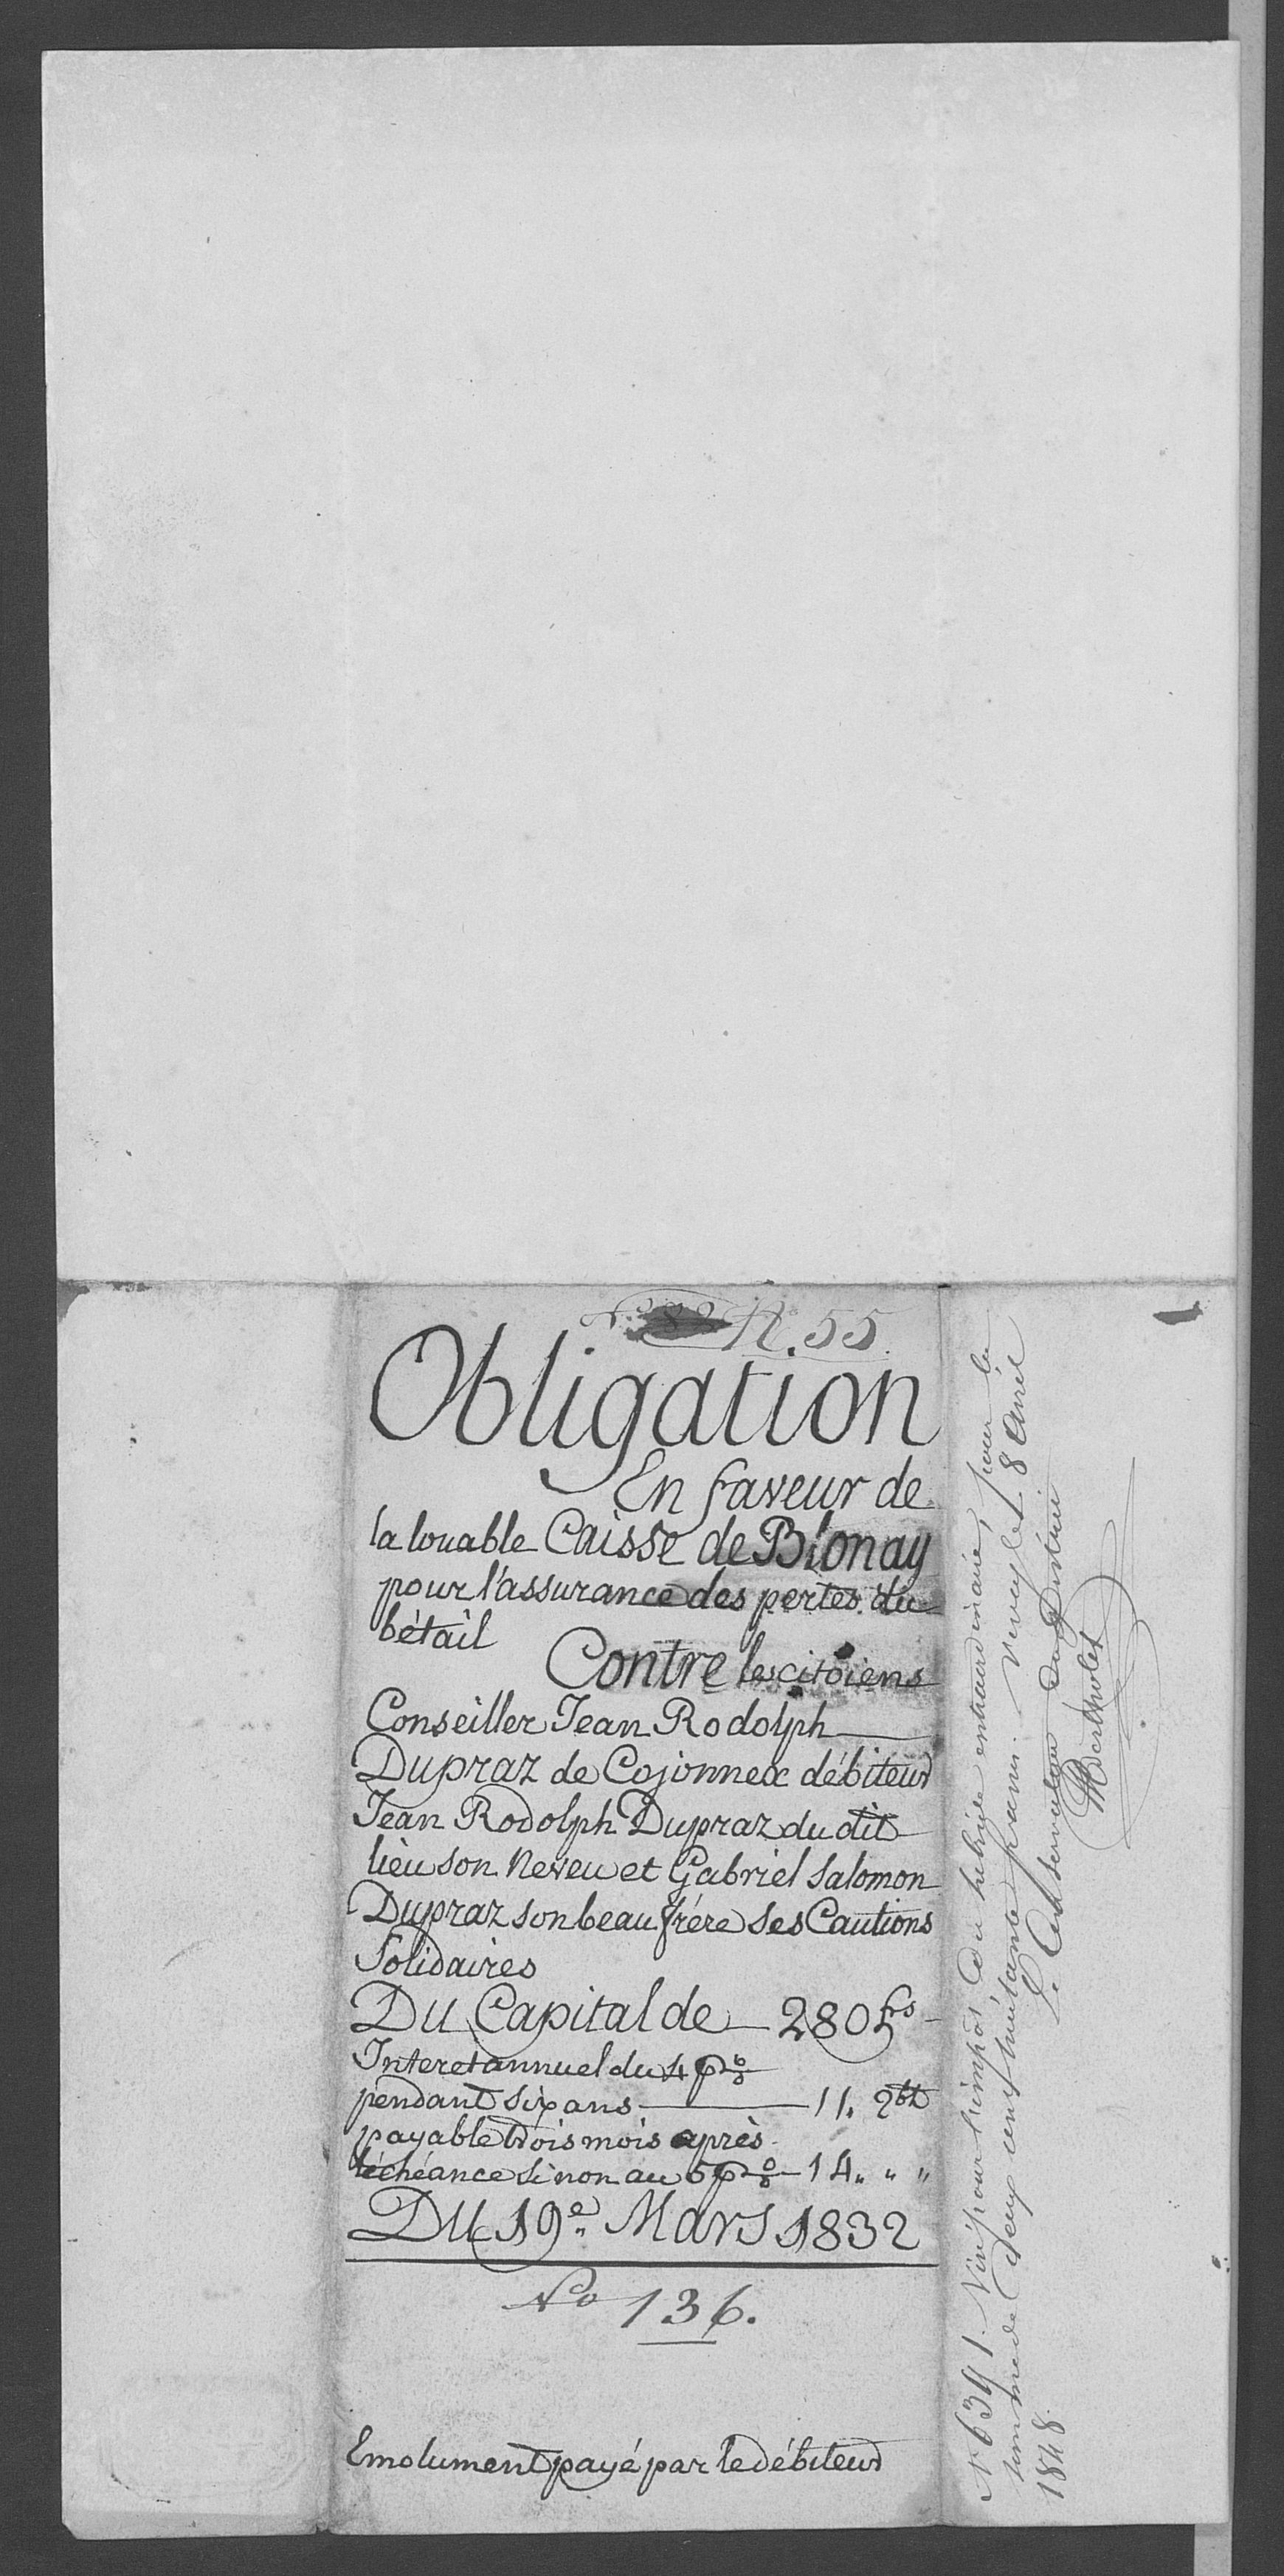 N. 55.
Obligation
En faveur de
la louable Caisse de Blonay
pour l'assurance des pertes du
bétail
Contre les citoiens
Conseiller Jean Rodolph
Dupraz de Cojonnex débiteur
Jean Rodolph Dupraz du dit
lieu son Neveu et Gabriel Salomon
Dupraz son beau frére ses Cautions
Solidaires
Du Capital de 280 fs
Interet annuel du 4 p%
pendant six ans 11. 2 btz
payable trois mois après
l'échéance sinon au 5 p% 14 " "
Du 19e. Mars 1832
No 136.
Emolument payé par le débiteur
No 6391. Visé pour l'impôt du timbre extraordinaire, pour la
somme de deux cent huitante francs. Vevey le 8 Avril
1848.
Le Conservateur du District
Bertholet